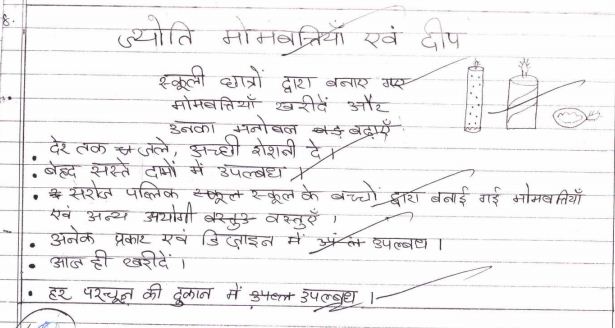 8.
ज्योति मोमबत्तियाँ एवं दीप
स्कूली छात्रों द्वारा बनाए गए
मोमबत्तियाँ खरीदें और
उनका मनोबल बढ़ाएँ
• देर तक जले, अच्छी रोशनी दे।
• बेहद सस्ते दामों में उपलब्ध।
• सरोज पब्लिक स्कूल के बच्चों द्वारा बनाई गई मोमबत्तियाँ
एवं अन्य अयोगी वस्तुएँ।
• अनेक प्रकार एवं डिज़ाइन में उपलब्ध।
• आज ही खरीदें।
• हर परचून की दुकान में उपलब्ध।